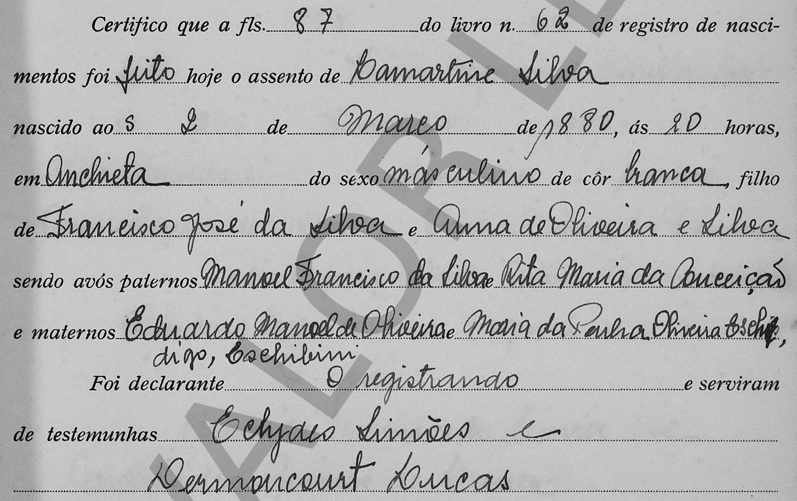 Certifico que a fls. 87 do livro n. 62 de registro de nasci-
mentos foi feito hoje o assento de Lamartine Silva
nascido aos 2 de Março de 1880, ás 20 horas,
em Anchieta do sexo másculino de côr branca, filho
de Francisco José da Silva e Anna de Oliveira e Silva
sendo avós paternos Manoel Francisco da Silva e Rita Maria da Conceição
e maternos Eduardo Manoel de Oliveira e Maria da Penha Oliveira
digo, Eschibimi
Foi declarante O registrando e serviram
de testemunhas Eclydes Simões e
Dermoncourt Lucas
VALOR